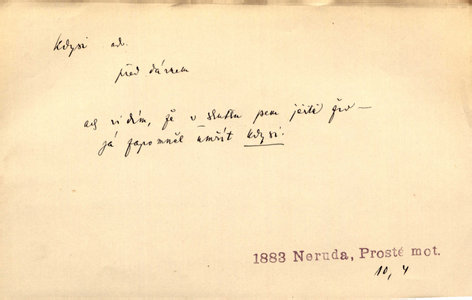 Kdysi adv.
před dávnem
ach vidím, že v skutku jsem ještě živ —
já zapomněl umřít kdysi.
1883 Neruda, Prosté mot.
10, 4